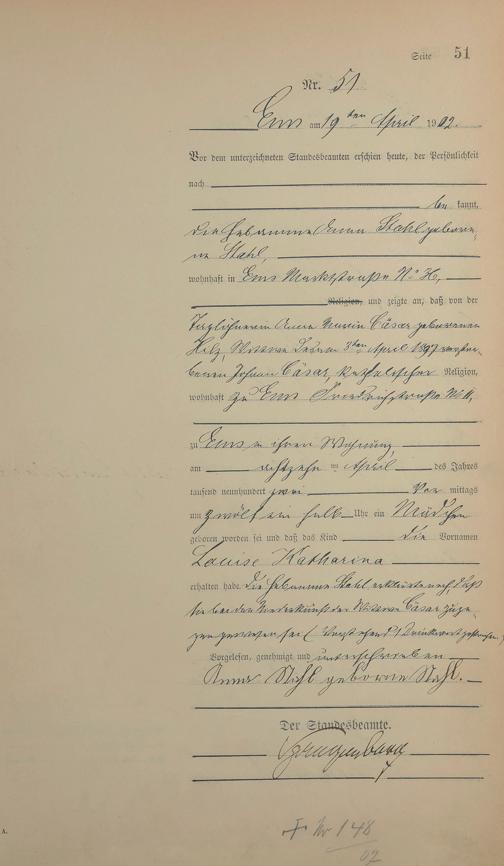 Seite 51
Nr. 51
Ems am 19ten April 1902.
Vor dem unterzeichneten Standesbeamten erschien heute, der Persönlichkeit
nach
be kannt,
die Hebamme Anna Stahl gebore-
ne Stahl,
wohnhaft in Ems Marktstraße No 36,
Religion, und zeigte an, daß von der
Taglöhnerin Anna Maria Cäsar geborenen
Hilz, Wittwe des am 3ten April 1897 verstor-
benen Johann Cäsar, katholischer Religion,
wohnhaft zu Ems Friedrichstraße No
zu Ems in ihrer Wohnung
am achtzehn ten April des Jahres
tausend neunhundert zwei Vor mittags
um zwölf ein halb Uhr ein Mädchen
geboren worden sei und daß das Kind die Vornamen
Louise Katharina
erhalten habe. Die Hebamme Stahl erklärte noch, daß
sie bei der Niederkunft der Wittwe Cäsar zuge-
gen gewesen sei (Vorstehend 1 Druckwort gestrichen.)
Vorgelesen, genehmigt und unterschrieben
Anna Stahl geborne Stahl.
Der Standesbeamte.
+ Nr 148
02
A.